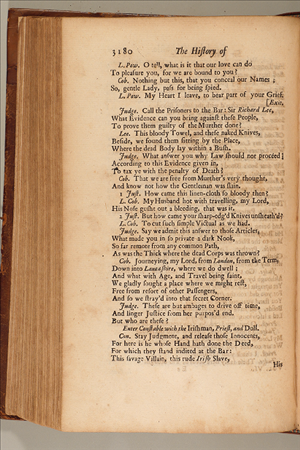 3180 The History of
L. Pow. O tell, what is it that our love can do
To pleasure you, for we are bound to you?
Cob. Nothing but this, that you conceal our Names;
So, gentle Lady, pass for being spied.
L. Pow. My Heart I leave, to bear part of your Grief.
[Exit.
Judge. Call the Prisoners to the Bar: Sir Richard Lee,
What Evidence can you bring against these People,
To prove them guilty of the Murther done?
Lee. This bloody Towel, and these naked Knives,
Beside, we found them sitting by the Place,
Where the dead Body lay within a Bush.
Judge. What answer you why Law should not proceed
According to this Evidence given in,
To tax ye with the penalty of Death?
Cob. That we are free from Murther's very thought,
And know not how the Gentleman was slain.
1 Just. How came this linen-cloth so bloody then?
L. Cob. My Husband hot with travelling, my Lord,
His Nose gusht out a bleeding, that was it.
2 Just. But how came your sharp-edg'd Knives unsheath'd?
L. Cob. To cut such simple Victual as we had.
Judge. Say we admit this answer to those Articles,
What made you in so private a dark Nook,
So far remote from any common Path,
As was the Thick where the dead Corps was thrown?
Cob. Journeying, my Lord, from London, from the Term,
Down into Lancashire, where we do dwell;
And what with Age, and Travel being faint,
We gladly sought a place where we might rest,
Free from resort of other Passengers,
And so we stray'd into that secret Corner.
Judge. These are but ambages to drive off time,
And linger Justice from her purpos'd end.
But who are these?
Enter Constable with the Irishman, Priest, and Doll.
Con. Stay Judgment, and release those Innocents,
For here is he whose Hand hath done the Deed,
For which they stand indited at the Bar:
This savage Villain, this rude Irish Slave,
His